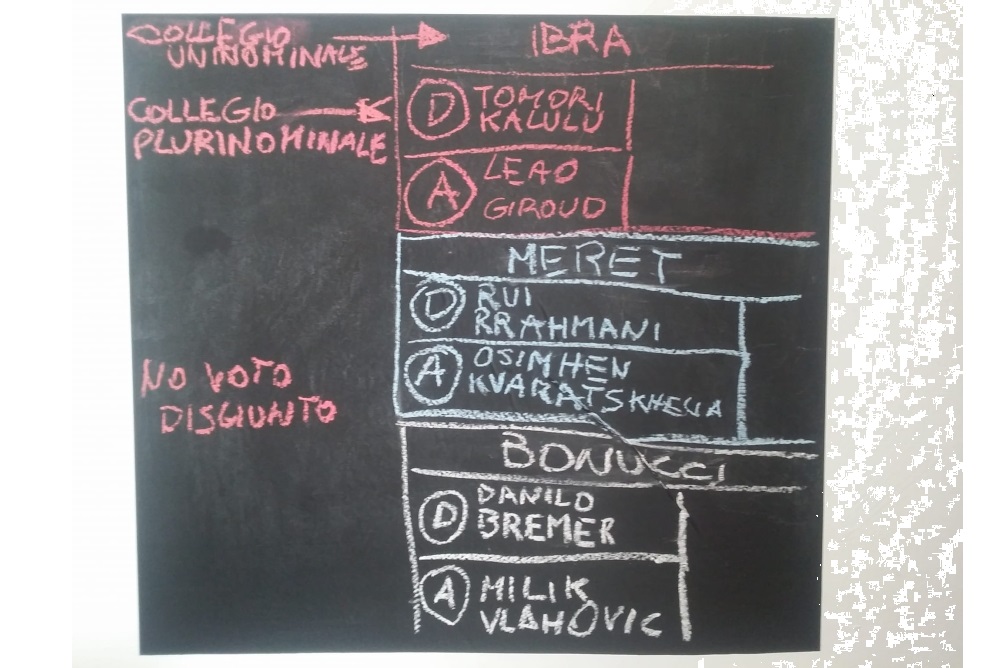 COLLEGIO
UNINOMINALE
IBRA
COLLEGIO
PLURINOMINALE
D TOMORI
KALULU
A LEAO
GIROUD
MERET
D RUI
RRAHMANI
A OSIMHEN
KVARATSKHEGA
NO VOTO
DISGIUNTO
BONUCCI
D DANILO
BREMER
A MILIK
VLAHOVIC